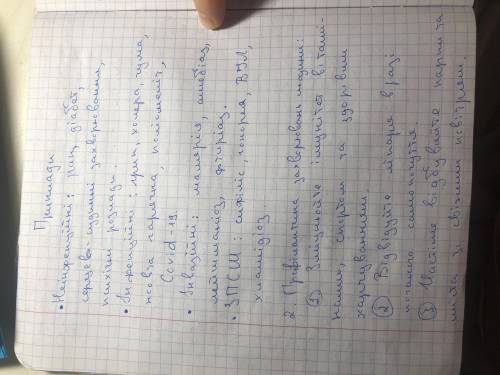 Приклади
• Неінфекційні: рак, діабет,
серцево-судинні захворювання,
психічні розлади.
• Інфекційні: грип, холера, чума,
жовта гарячка, поліомієліт,
Covid-19.
• Інвазійні: малярія, амебіаз,
лейшманіоз, фтиріаз.
• ЗПСШ: сифіліс, гонорея, ВІЛ,
хламідіоз.
2. Профілактика захворювань людини:
① Зміцнюйте імунітет вітамі-
нами, спортом та здоровим
харчуванням.
② Відвідуйте лікаря в разі
поганого самопочуття.
③ Частіше відвідуйте парки та
міста з свіжим повітрям.